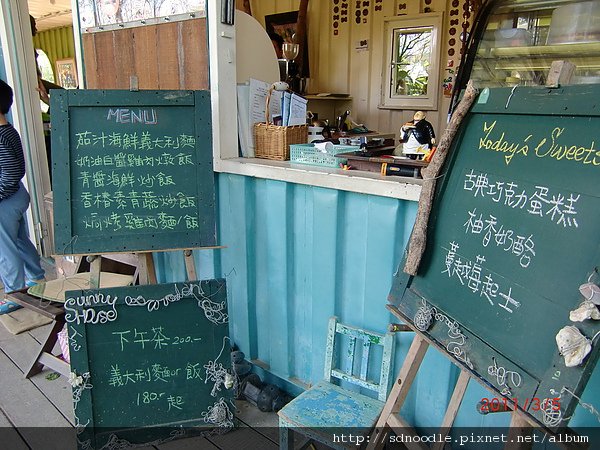 MENU
茄汁海鮮義大利麵
奶油白醬雞肉炊飯
青醬海鮮炒飯
香椿素青蔬炒飯
焗烤雞肉麵/飯
Today's Sweets
古典巧克力蛋糕
柚香奶酪
蔓越莓起士
Sunny
HOUSE
下午茶200.-
義大利麵or飯
180.-起
2011/3/5
http://sdnoodle.pixnet.net/album